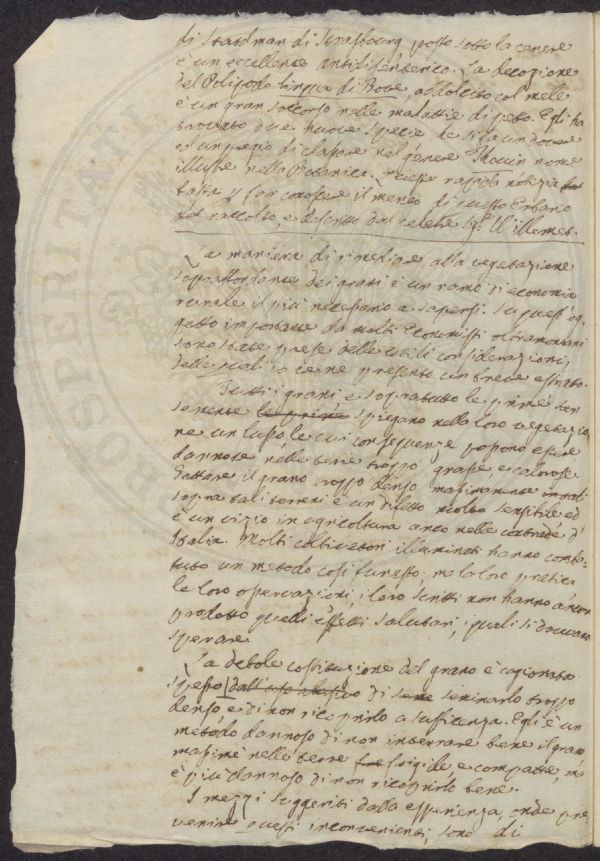 di Stasdman di Strasbourg posto sotto la cenere
è un eccellente antidisenterico. La decozione
del Polipode lingua di Bove, addolcito col mele
è un gran soccorso nelle malattie di petto. Egli ha
trovato due nuove specie che si fa un dovere
ed un pregio di classare nel genere Thouin nome
illustre nella Botanica. Questa rapida notizia
basta per far conoscere il merito di questo Erbario
raccolto, e descritto dal celebre Sig.r Willemet.
La maniera di rimediare alla vegetazione
soprabbondante dei grani è un ramo di economia
rurale il più necessario a sapersi. Su quest'og-
getto importante da molti Economisti oltramontani
sono state prese delle utili considerazioni,
delle quali io ne presento un breve estratto.
Tutti i grani e soprattutto le prime sen
semente le prime spiegano nella loro vegetazio
ne un lusso, le cui conseguenze possono essere
dannose nelle terre troppo grasse, e calorose.
Gettare il grano troppo denso massimamente
sopra tali terreni è un difetto molto sensibile ed
è un vizio in agricoltura anco nelle contrade d'
Italia. Molti coltivatori illuminati hanno comba-
tuto un metodo così funesto; ma la loro pratica
le loro osservazioni, i loro scritti non hanno ancora
prodotto quelli effetti salubari, quali si doveano
sperare.
La debole costituzione del grano è cagionata
spesso dall'uso di seminarlo troppo
denso e di non ricoprirlo a sufficienza. Egli è un
metodo dannoso di non interrare bene il grano
massime nelle terre frigide, e compatte, ma
è più dannoso di non ricoprirlo bene.
I mezzi suggeriti dalla esperienza, onde pre
venire questi inconvenienti, sono di
PROSPERITATI